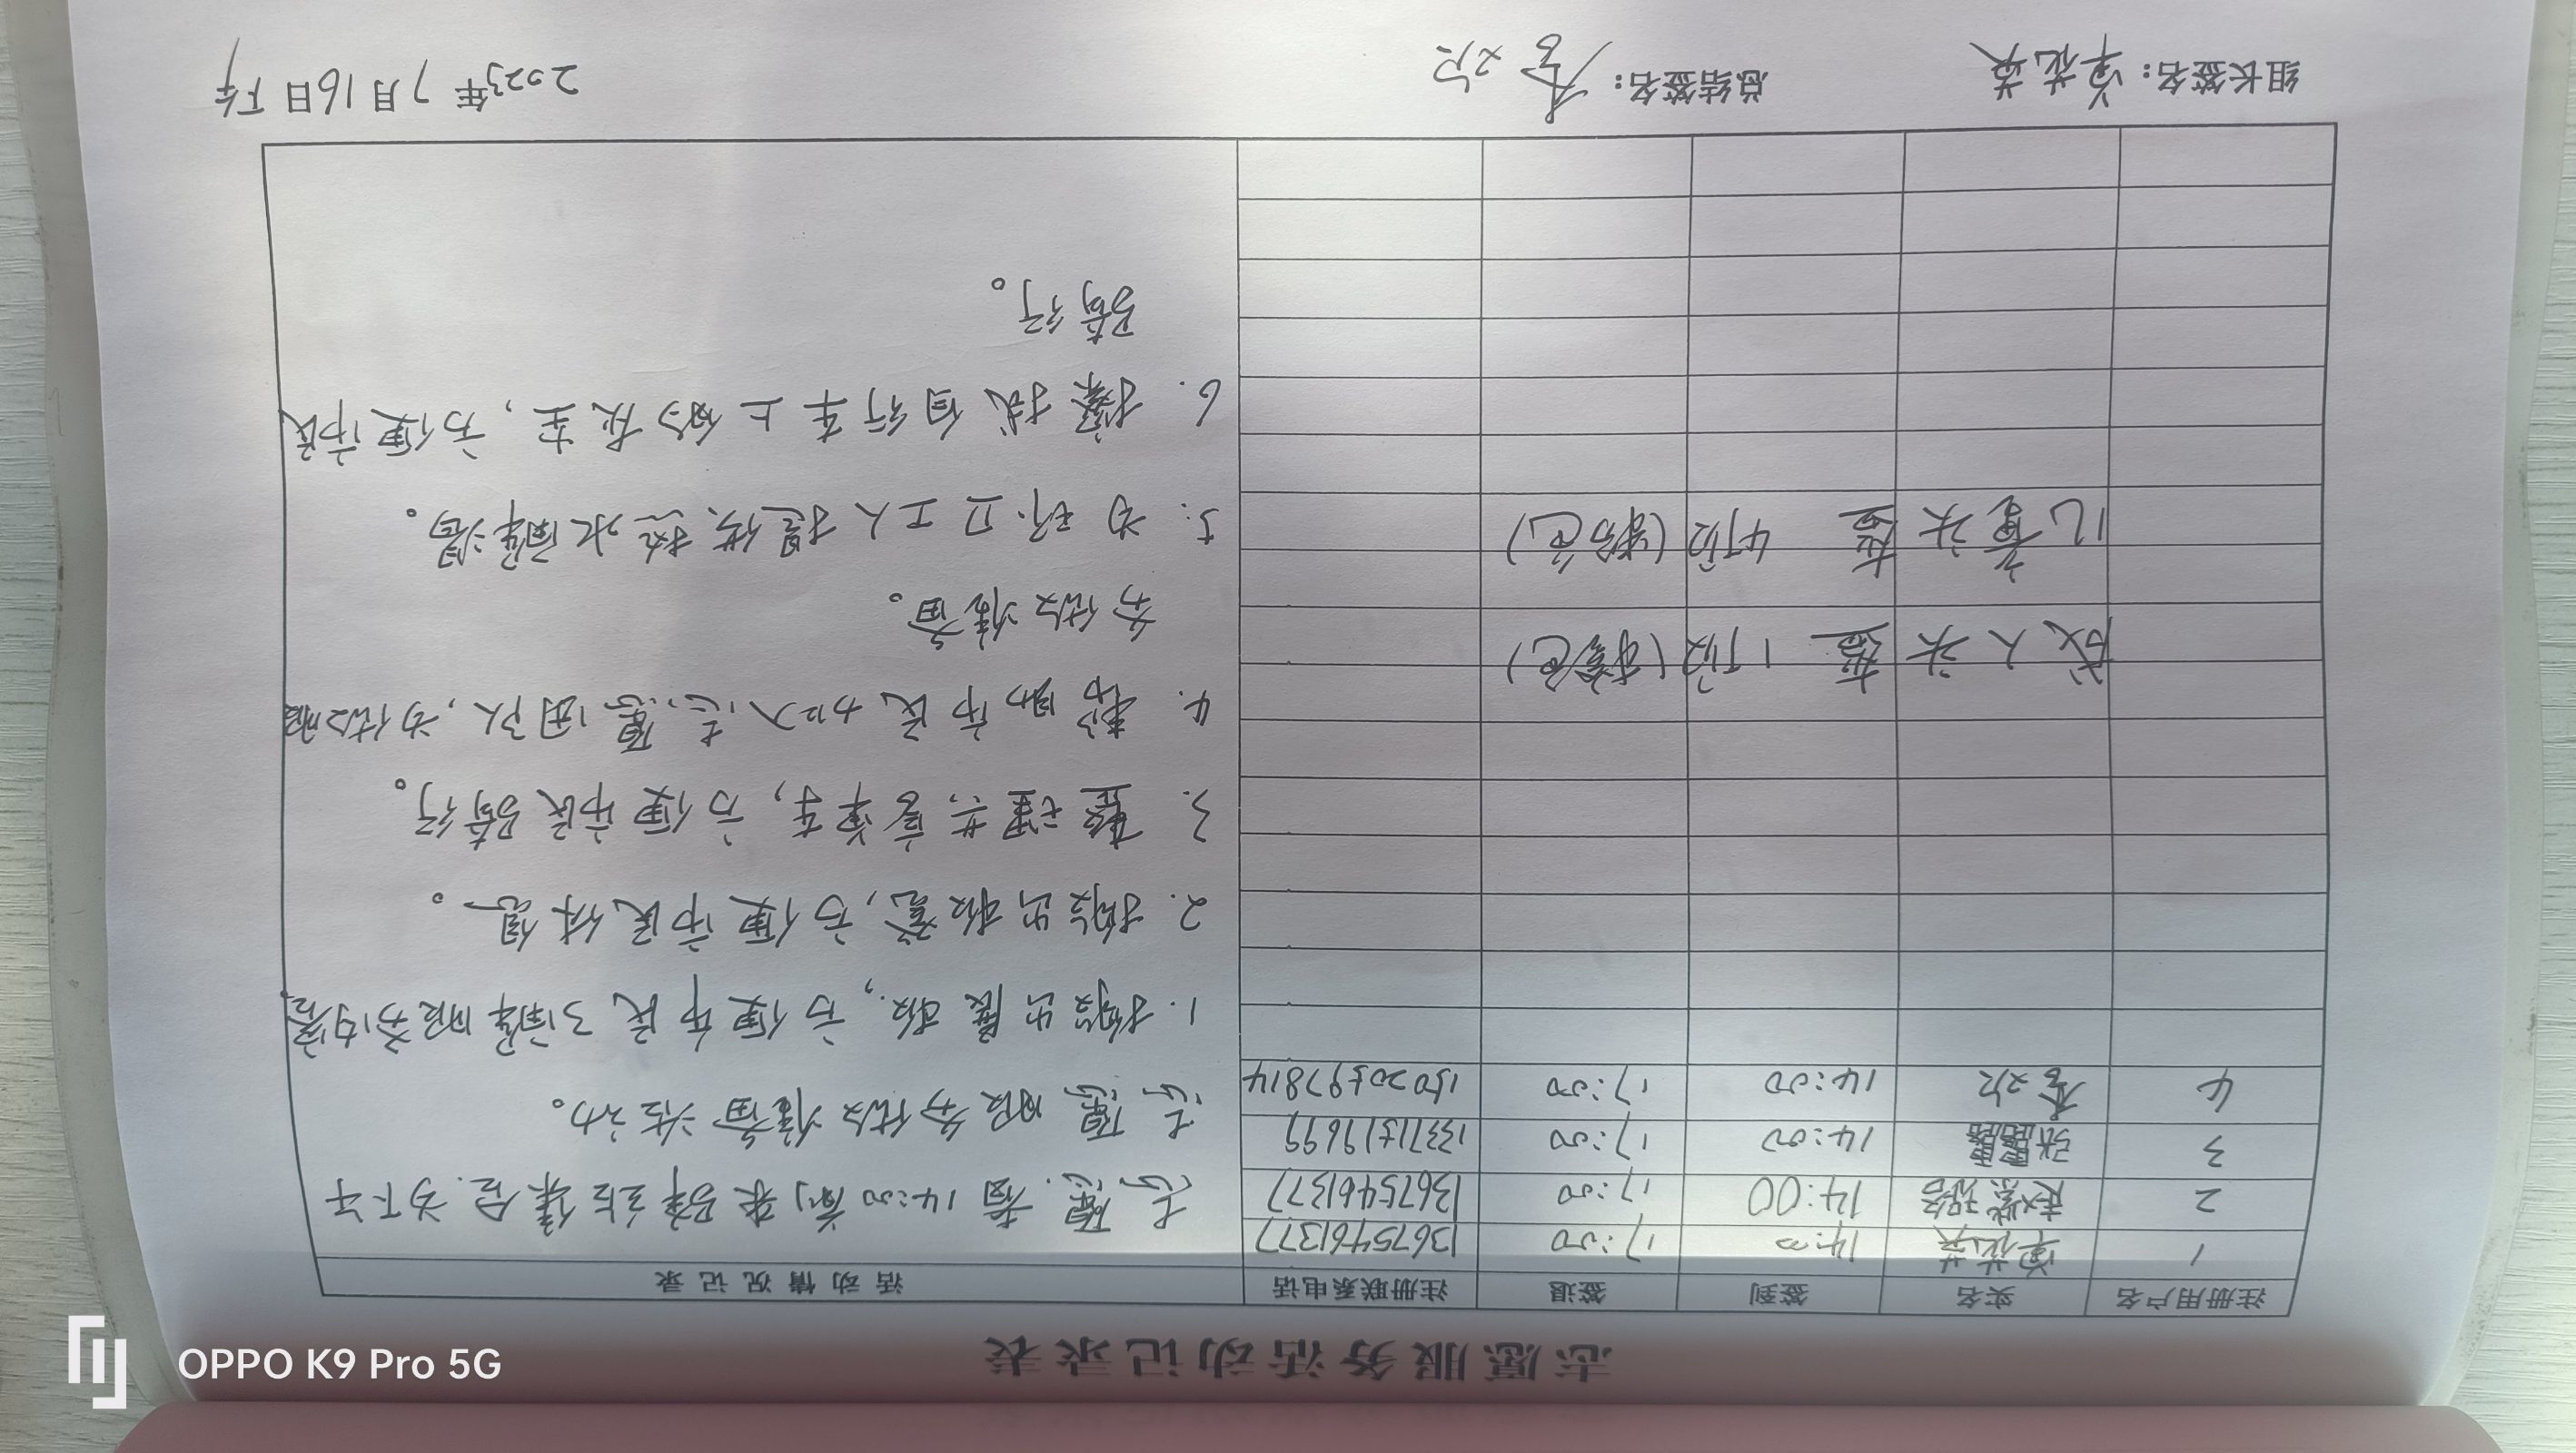 志愿服务活动记录表
注册用户名 实名 签到 签退 注册联系电话 活动情况记录
1 14:00 17:00 13675461377
2 赵紫瑢 14:00 17:00 13675461377
3 张露露 14:00 17:00 13371519699
4 李欢 14:00 17:00 15020597814
志愿者14:00前来驿站集合.为下午
志愿服务做准备活动。
1. 搬出展板,方便市民了解服务内容
2. 搬出板凳,方便市民休息。
3. 整理共享单车,方便市民骑行。
4. 帮助市民加入志愿团队,为做服
务做准备。
5. 为环卫工人提供热水解渴。
6. 擦拭自行车上的灰尘,方便市民
骑行。
成人头盔 1顶(橙色)
儿童头盔 4顶(粉色)
组长签名: 总结签名:李欢 2023年7月16日下午
OPPO K9 Pro 5G